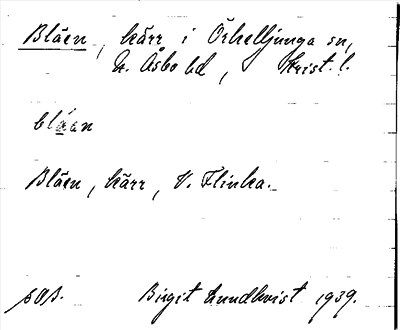 Bläen, kärr i Örkelljunga sn,
N. Åsbo hd, Krist. l.
bläan
Bläen, kärr, V. Flinka.
Birgit Lundkvist 1939.